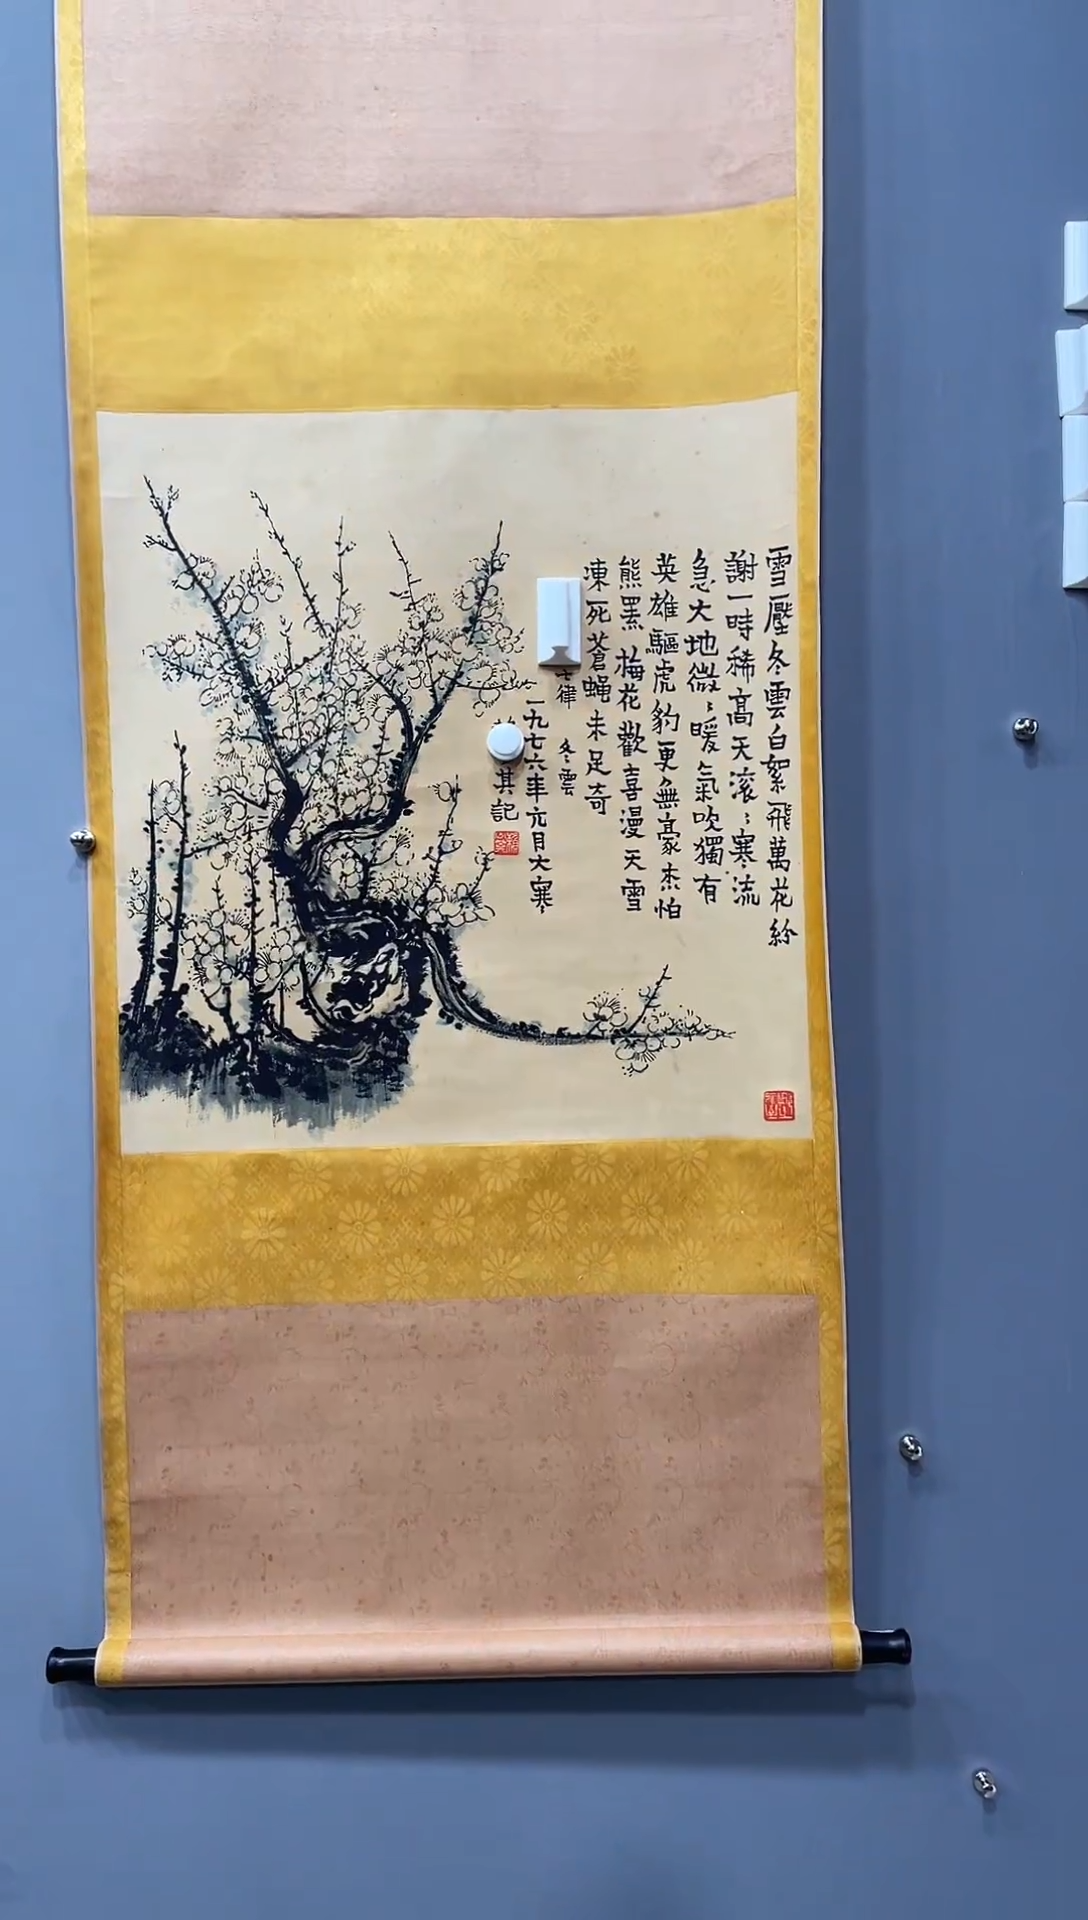 雪壓冬雲白絮飛萬花紛
謝一時稀高天滾〻寒流
急大地微〻暖氣吹獨有
英雄驅虎豹更無豪杰怕
熊羆梅花歡喜漫天雪
凍死蒼蝇未足奇
七律 冬雲
一九七六年元月大寒
其記